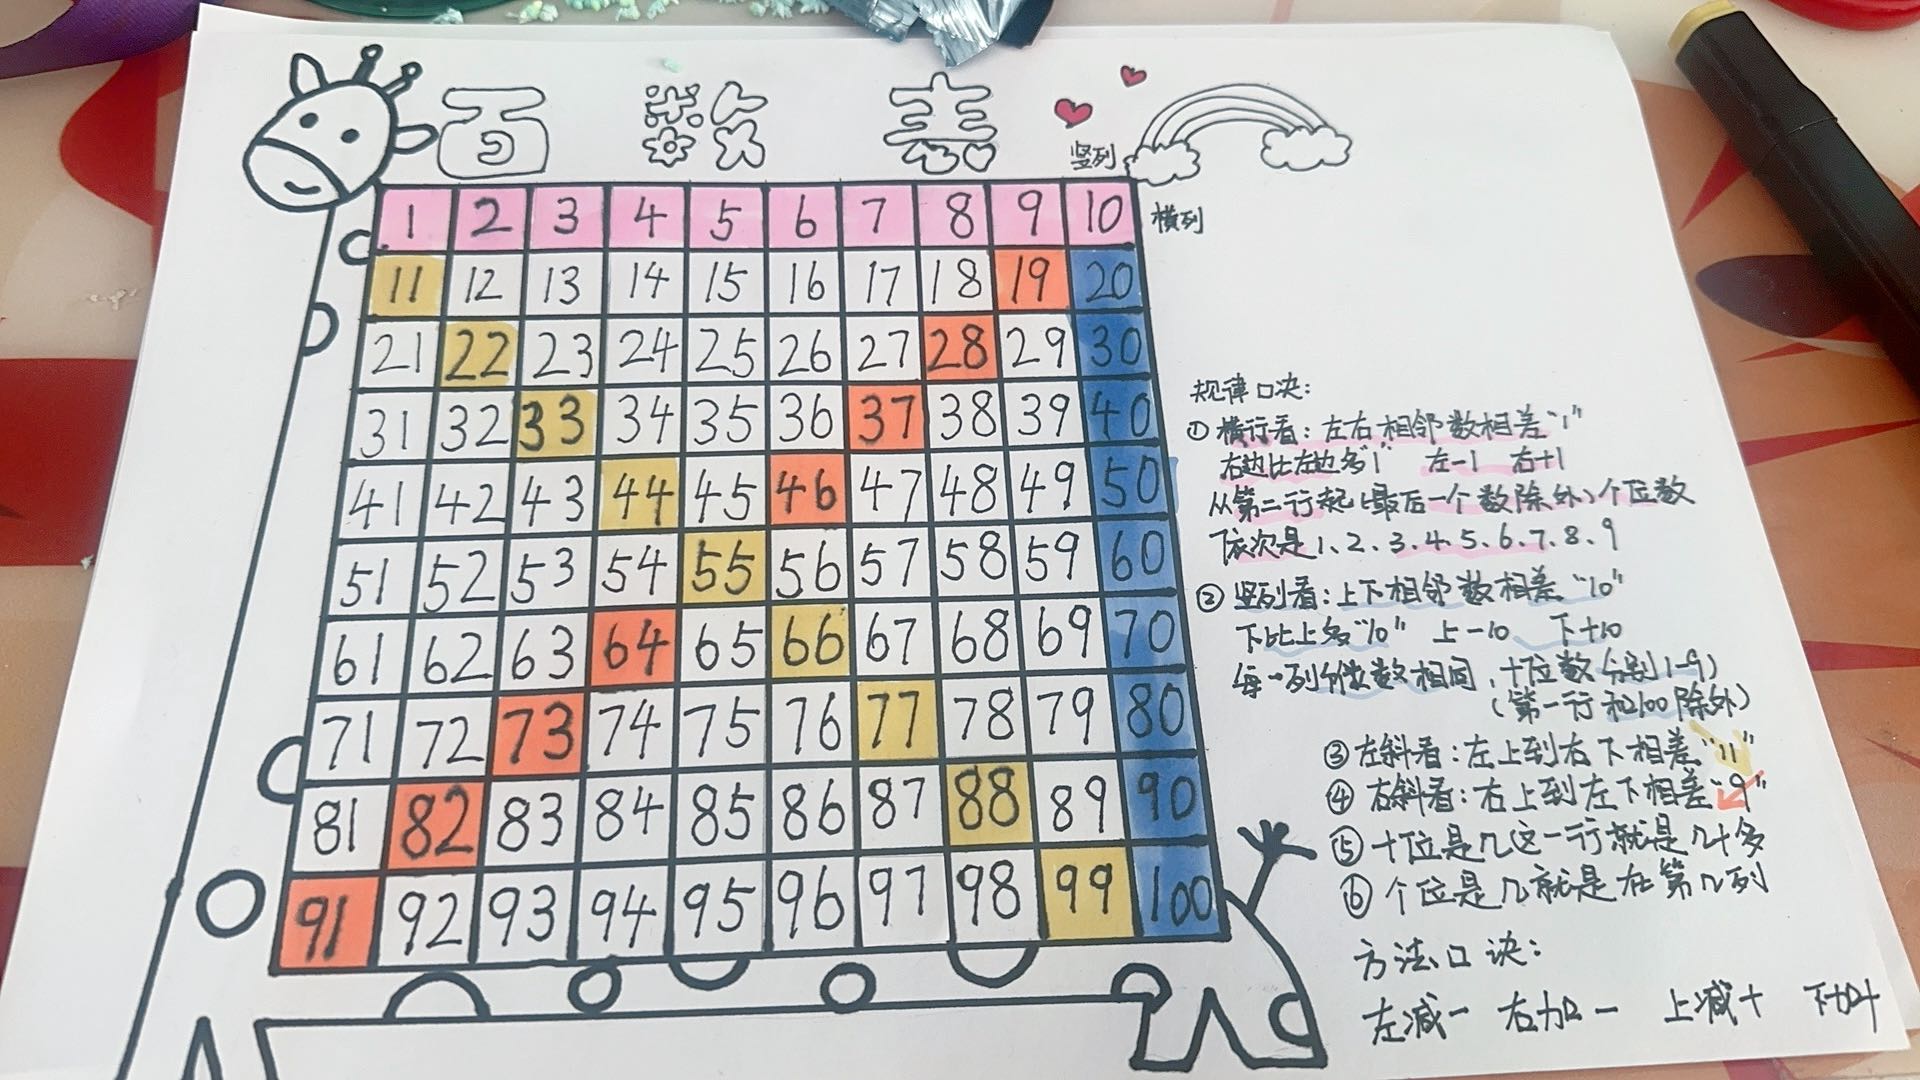 百数表
竖列
横列
1 2 3 4 5 6 7 8 9 10
11 12 13 14 15 16 17 18 19 20
21 22 23 24 25 26 27 28 29 30
31 32 33 34 35 36 37 38 39 40
41 42 43 44 45 46 47 48 49 50
51 52 53 54 55 56 57 58 59 60
61 62 63 64 65 66 67 68 69 70
71 72 73 74 75 76 77 78 79 80
81 82 83 84 85 86 87 88 89 90
91 92 93 94 95 96 97 98 99 100
规律口决:
① 横行看:左右相邻数相差"1"
右边比左边多"1" 左-1 右+1
从第二行起(最后一个数除外)个位数
依次是1、2、3、4、5、6、7、8、9
② 竖列看:上下相邻数相差"10"
下比上多"10" 上-10 下+10
每一列个位数相同,十位数分别1-9)
(第一行和100除外)
③ 左斜看:左上到右下相差"11"
④ 右斜看:右上到左下相差"9"
⑤ 十位是几这一行就是几十多
⑥ 个位是几就是在第几列
方法口诀:
左减一 右加一 上减十 下加十